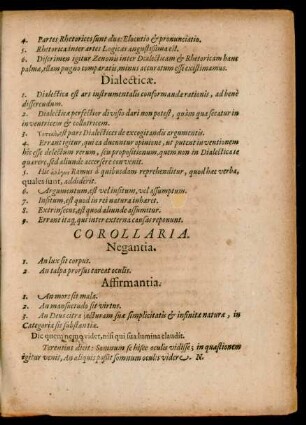 4. Partes Rhetorices sunt duæ: Elocutio & pronunciatio.
5. Rhetorica inter artes Logicas augustissima est.
6. Discrimen igitur Zenonis inter Dialecticam & Rhetoricam hanc
palmæ, illam pugno comparatis, minus accuratum esse existimamus.
Dialecticæ.
1. Dialectica est ars instrumentalis conformandæ rationis, ad benè
disserendum.
2. Dialecticæ perfectior divisio dari non potest, quàm quæ secatur in
inventricem & collatricem.
3. est pars Dialectices de excogitandis argumentis.
4. Errant igitur, qui eò ducuntur opinione, ut putent inventionem
hîc esse delectum rerum, seu propositionum, quem non in Dialectica
quærere, sed aliunde accersere convenit.
5. Hic Ramus à quibusdam reprehenditur, quod hæc verba,
quales sunt, addiderit.
6. Argumentum, est vel insitum, vel assumptum.
7. Insitum, est quod in rei natura inhæret.
8. Extrinsecus, est quod aliunde assumitur.
9. Errant itaq, qui inter externa consacra ponunt.
COROLLARIA.
Negantia.
1. An lux sit corpus.
2. An talpa prorsus careat oculis.
Affirmantia.
1. An mors sit mala.
2. An mansuetudo sit virtus.
3. An Deus citra jacturam suæ simplicitatis & infinitæ naturæ, in
Categoria sit substantia.
Dic quem nemo videt, nisi qui sua lumina claudit.
Terentius dicit: Somnum se hisce oculis vidisse; in quæstionem
igitur venit, An aliquis possit somnum oculis videre. N.